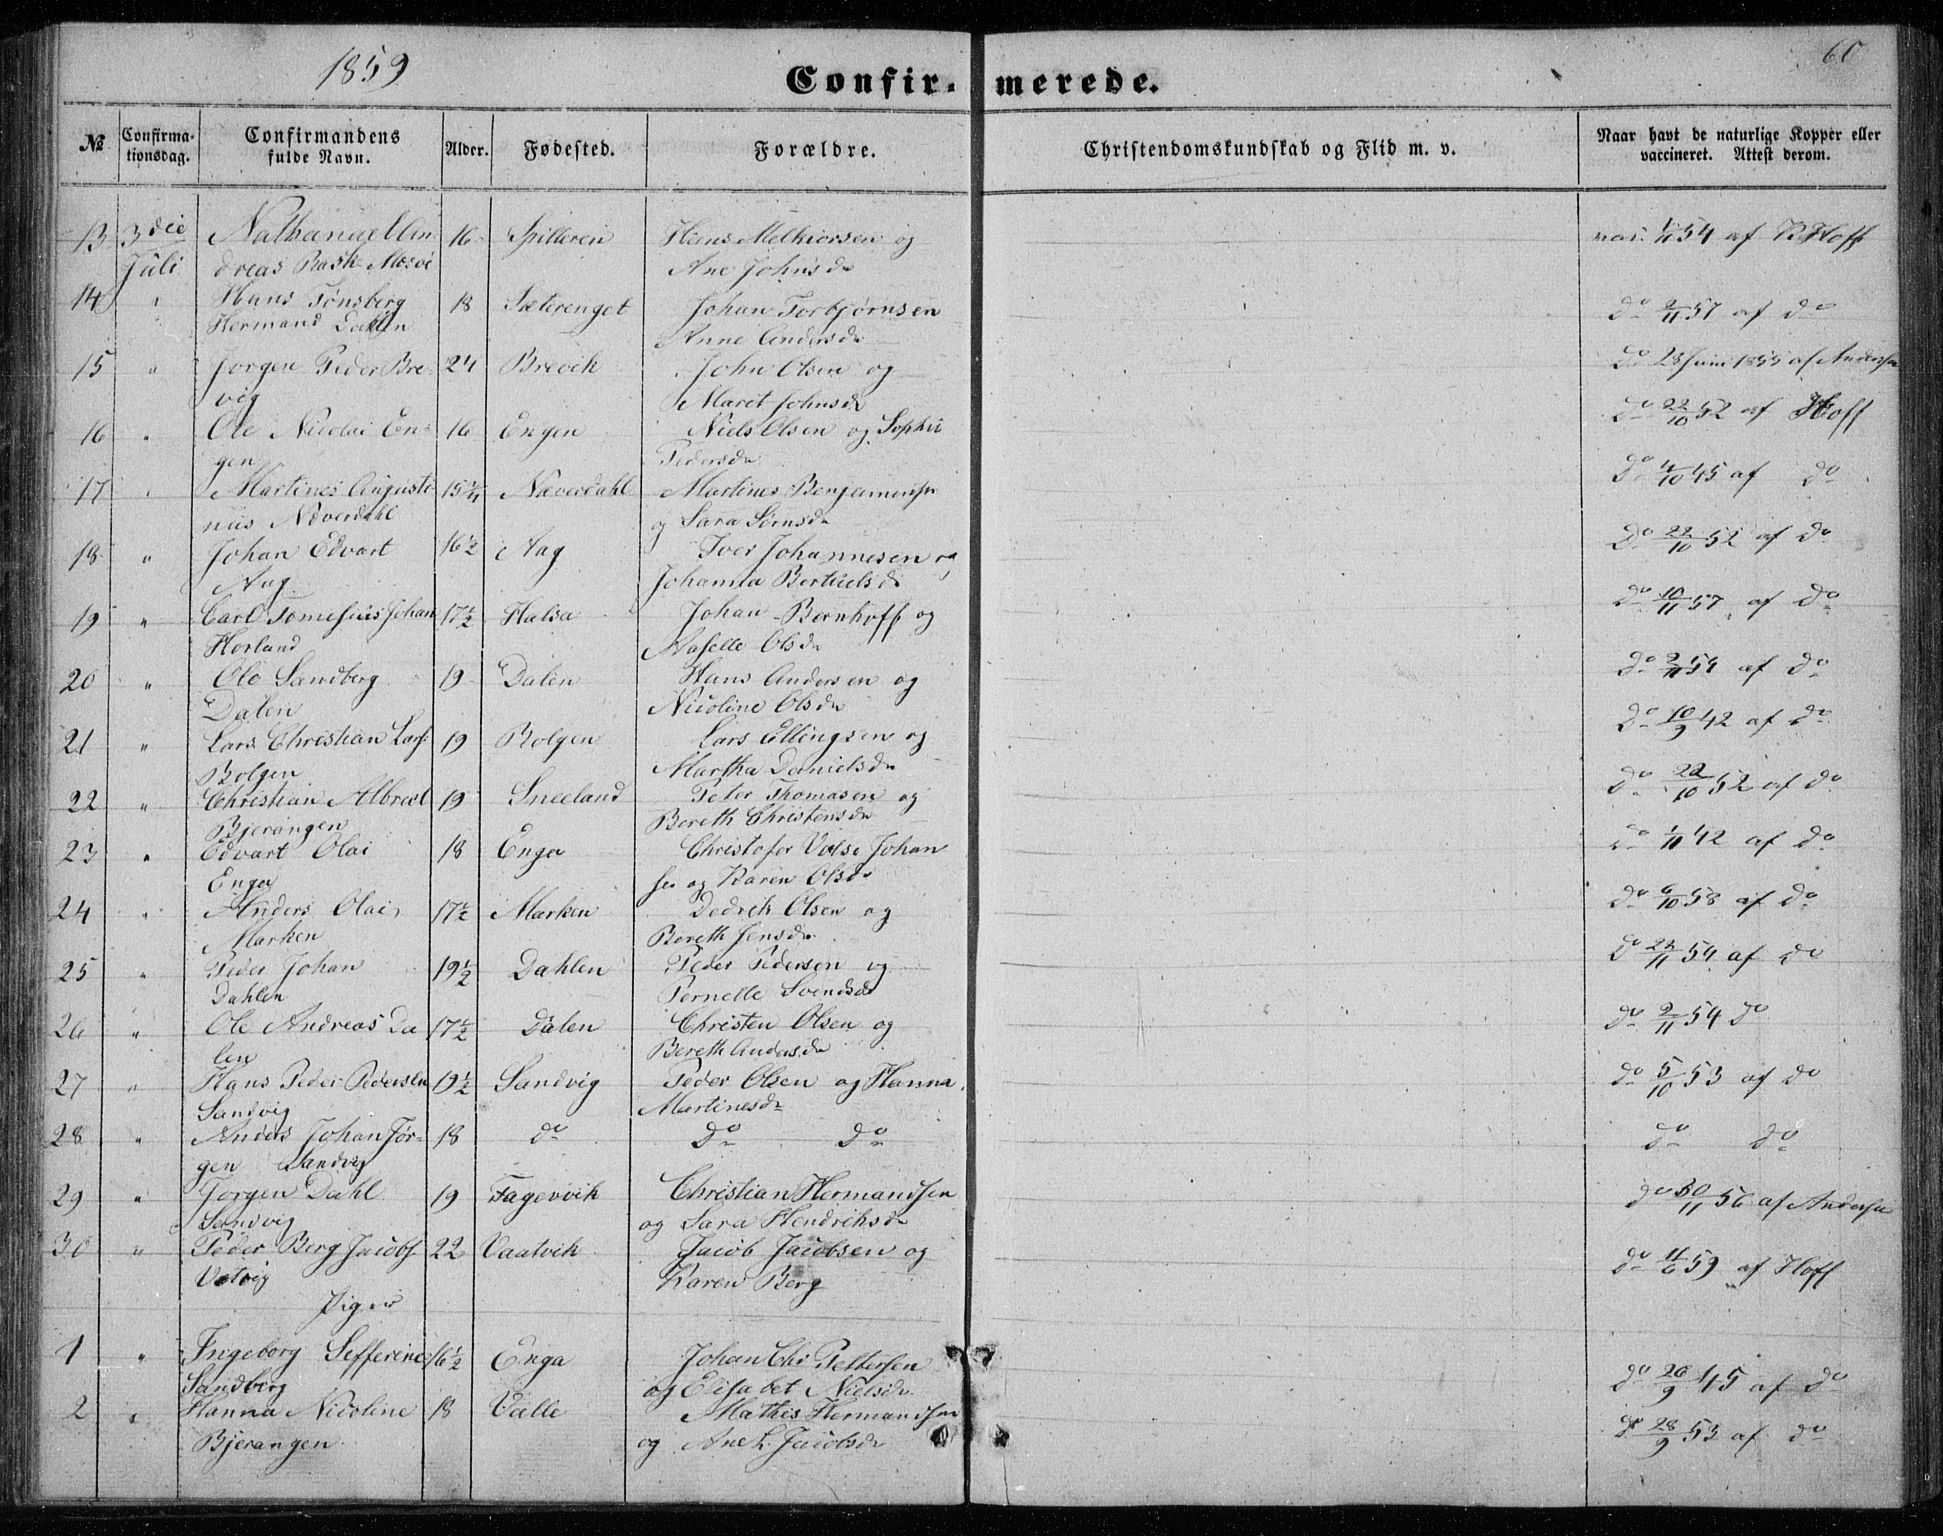 1859
60
Confir- merede.
№ Confirma- tionsdag. Confirmandens fulde Navn. Alder. Fødested. Forældre. Christendomskundskab og Flid m. v. Naar havt de naturlige Kopper eller vaccineret. Attest derom.
13 3die 16 Spilleren Hans Melkiorsen og 54 af Hoff
Juli dreas Rask Ane Johnsdr
14 " Hans Tønsberg 18 Sæterenget Johan Torbjørnsen do 2/11 57 af do
Hermand Dahlen Anne Andersdr
15 " Jørgen Peder Bre- 24 Brevik John Olsen og do 28 Juni 1855 af Andersen
vig Maret Johnsdr
16 " Ole Nicolai En- 16 Engen Niels Olsen og Sophie do 22/10 52 af Hoff
gen Pedersdr
17 " Martines Augusti- 15 3/4 Næverdahl Martines Benjaminsen do 4/10 45 af do
nus Næverdahl og Sara Sørnsdr
18 " Johan Edvart 16 1/2 Aag Iver Johannesen og do 22/10 52 af do
Aag Johanna Bertielsdr
19 " Carl Johan 17 1/2 Halsa Johan Bernhoff og do 10/11 57 af do
Horland Olsdr
20 " Ole Sandberg 19 Dalen Hans Andersen og do 2/11 54 af do
Dalen Nicoline Olsdr
21 " Lars Christian Lars- 19 Bolgen Lars Ellingsen og do 10/9 42 af do
Bolgen Martha Danielsdr
22 " Christian Albrect 19 Sneeland Peter Thomasen og do 22/10 52 af do
Bjerangen Bereth Christensdr
23 " Edvart Olai 18 Enga Christofer Johan do 1/11 42 af do
Enga sen og Karen Olsdr
24 " Anders Olai 17 1/2 Marken Dedrik Olsen og do 6/10 58 af do
Marken Bereth Jensdr
25 " Peder Johan 19 1/2 Dahlen Peder Pedersen og do 22/11 54 af do
Dahlen Pernelle Svendsdr
26 " Ole Andreas Da 17 1/2 Dalen Christen Olsen og do 2/11 54 do
len Bereth Andersdr
27 " Hans Peder Pedersen 19 1/2 Sandvig Peder Olsen og Hanna do 5/10 53 af do
Sandvig Martinesdr
28 " Anders Johan Jør- 18 do do do do do
gen Sandvig
29 " Jørgen Dahl 19 Fagervik Christian Hermandsen do 30/11 56 af Andersen
Sandvig og Sara Hendriksdr
30 " Peder Berg Jacobs 22 Vaatvik Jacob Jacobsen og do 11/6 59 af Hoff
Vatvig Karen Berg
Piger
1 " Ingeborg Sefferine 16 1/2 Enga Johan Chr Pettersen do 26/9 45 af do
Sandberg og Elisabet Nielsdr
2 " Hanna Nicoline 18 Valle Mathis Hermandsen do 28/9 53 af do
Bjerangen og Ane L. Jacobsdr